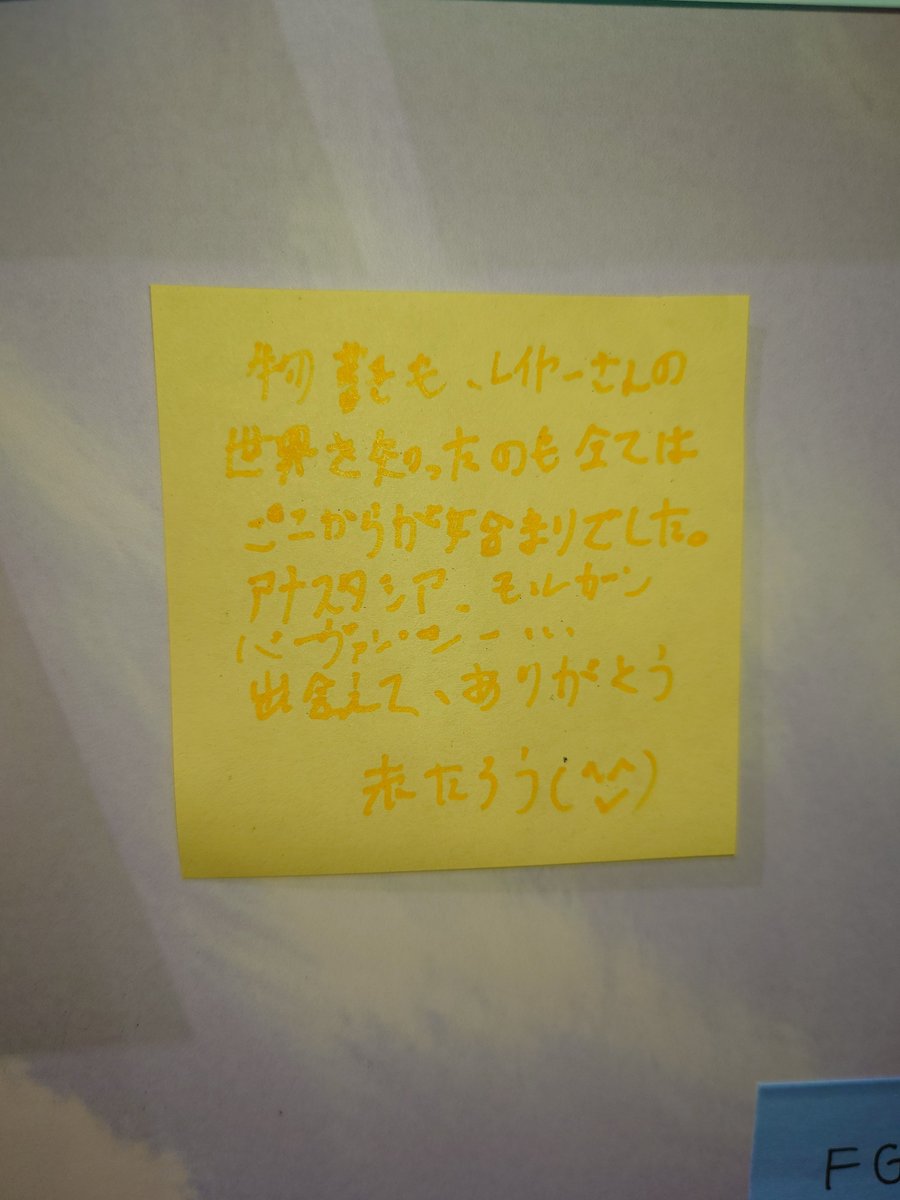 物書きも、レイヤーさんの
世界を知ったのも全ては
ここからが始まりでした。
アナスタシア、モルガン
バーヴァンシー…
出会えて、ありがとう
末たろう(^^)
FG